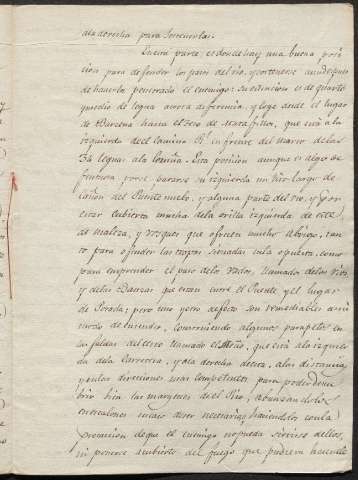 a la derecha para
parte, es donde hay una buena posi
cion para defender los pasos del rio, y sostenerse aun despues
de haverlo penetrado el enemigo: su extension es de quarto
y medio de legua a corta diferencia, y coge desde el lugar
de Barzena hasta el que está a la
izquierda del camino Rl. en frente del Marco de las
34 leguas a la Coruña. Esta posicion aunque es algo de
por su izquierda un tiro largo de
cañon del Puente nuevo, y alguna parte del rio, y por
estar cubierta mucha de la orilla izquierda de este
de maleza, y bosques que ofrecen mucho abrigo, tan
to para ofender las tropas situadas en la opuesta, como
para emprender el paso de los Vados, llamados de los
y de las que estan entre el Puente y el lugar
de Posada; pero uno y otro defecto son remediables a
de construiendo algunos parapetos en
las faldas del cerro llamado el que está a la izquier
da de la Carretera, y a la derecha de esta, a las distancias,
y en las direcciones mas competentes para poder
brir bien las margenes del Rio, abanzandolos
quanto sean necesarias, haciendolos con la
precaucion de que el enemigo no pueda servirse de ellos,
ni ponerse a cubierto del fuego que pudiera hacerle